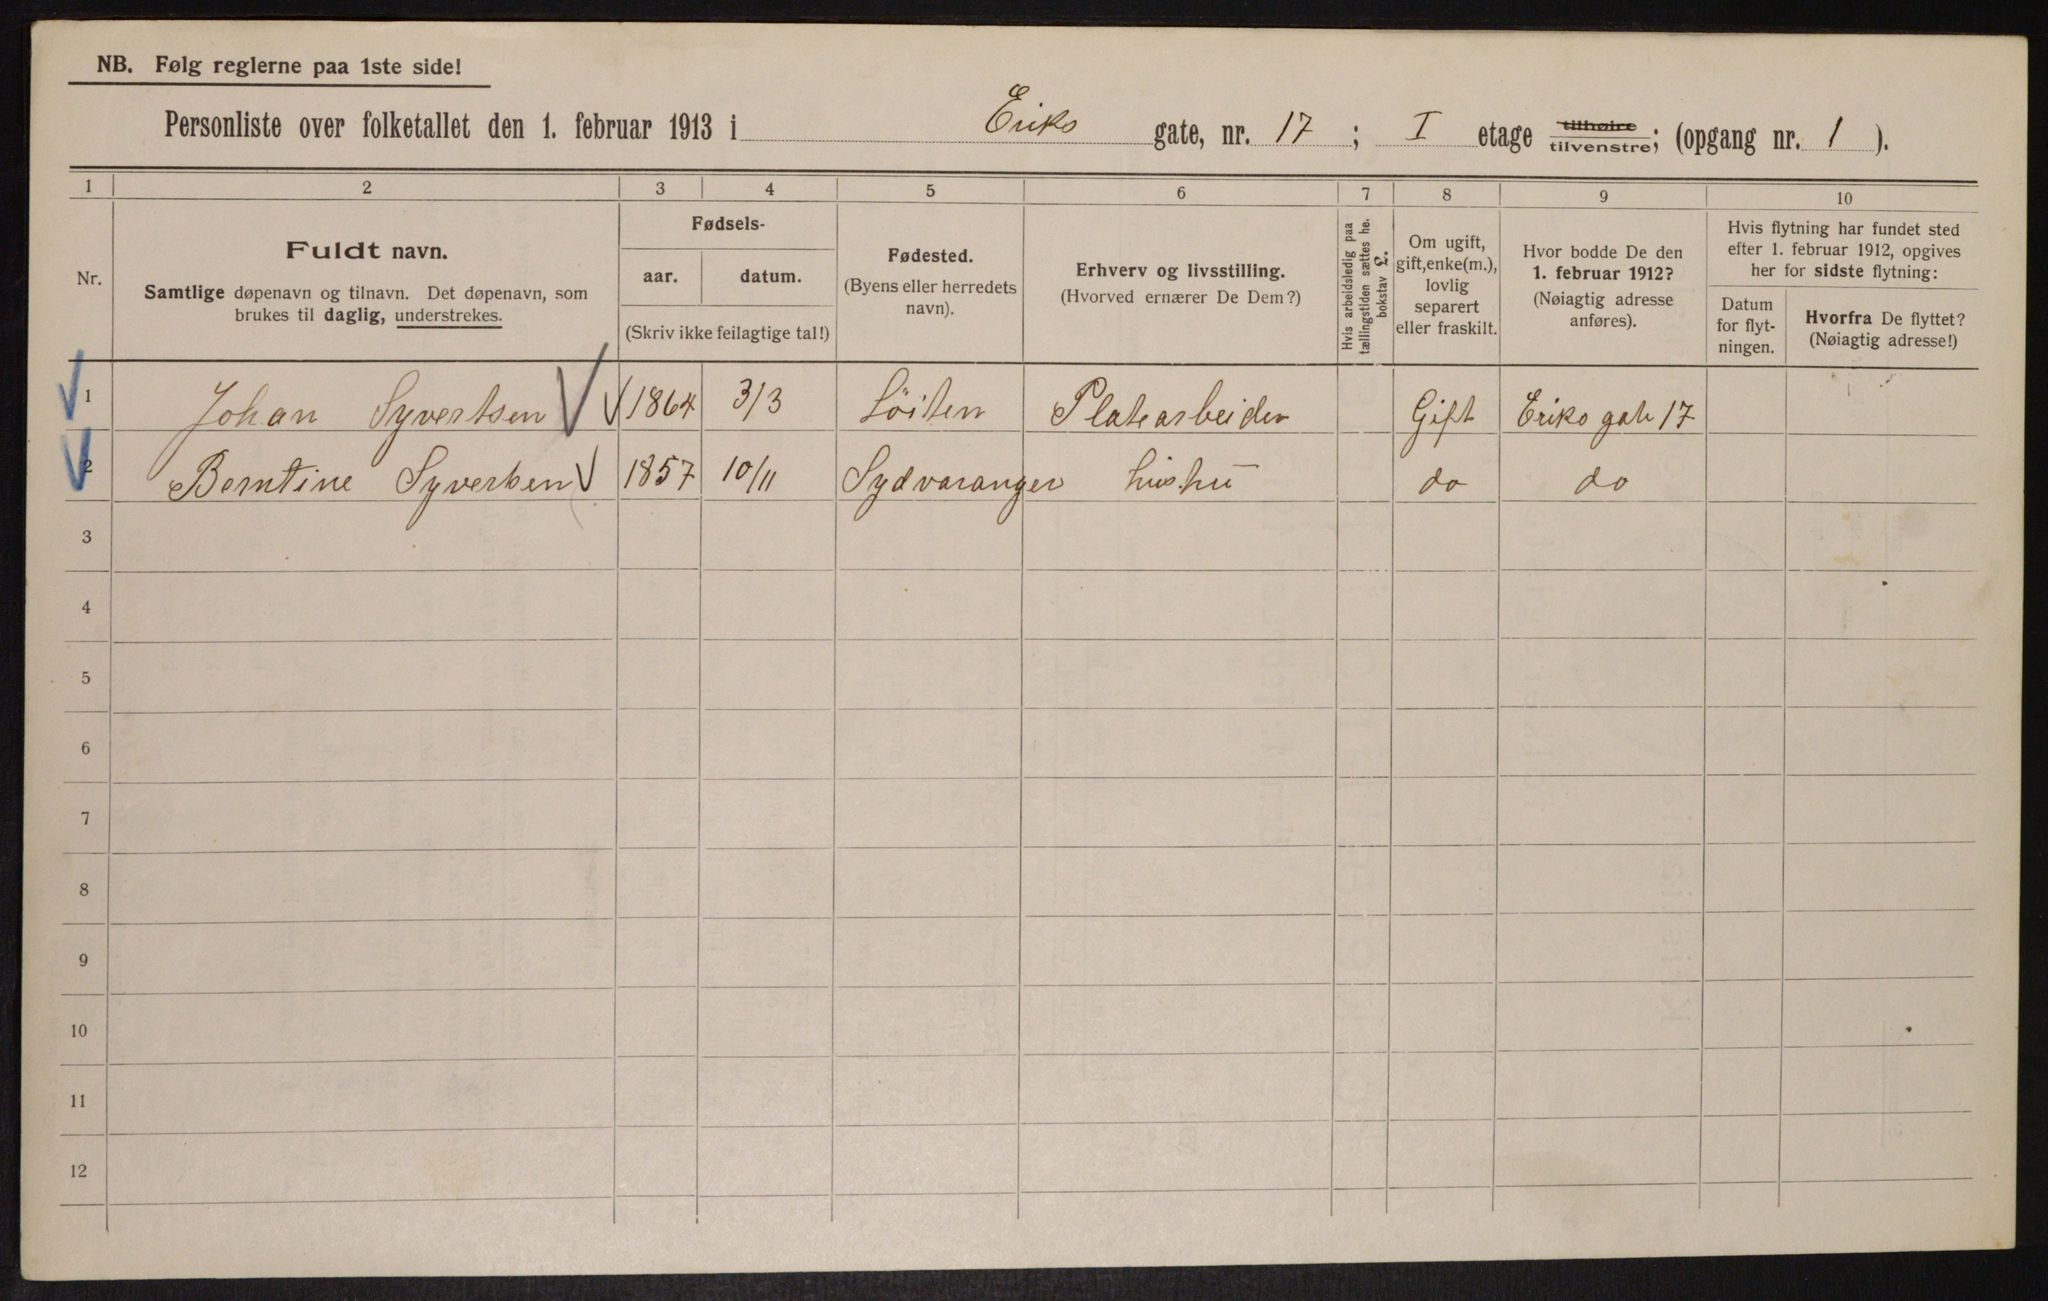 NB. Følg reglerne paa 1ste side!
Personliste over folketallet den 1. februar 1913 i Eriks gate, nr. 17; I etage tilhøire tilvenstre; (opgang nr. 1).
1 2 3 4 5 6 7 8 9 10
Nr.
Fuldt navn.
Samtlige døpenavn og tilnavn. Det døpenavn, som
brukes til daglig, understrekes.
Fødsels-
aar. datum.
(Skriv ikke feilagtige tal!)
Fødested.
(Byens eller herredets
navn).
Erhverv og livsstilling.
(Hvorved ernærer De Dem?)
Hvis arbeidsledig paa
tællingstiden sættes her
bokstav L.
Om ugift,
gift, enke(m.),
lovlig
separert
eller fraskilt.
Hvor bodde De den
1. februar 1912?
(Nøiagtig adresse
anføres).
Hvis flytning har fundet sted
efter 1. februar 1912, opgives
her for sidste flytning:
Datum
for flyt-
ningen.
Hvorfra De flyttet?
(Nøiagtig adresse!)
1 Johan Syvertsen 1864 3/3 Löiten Platearbeider Gift Eriks gate 17
2 Berntine Syvertsen 1857 10/11 Sydvaranger do do
3
4
5
6
7
8
9
10
11
12